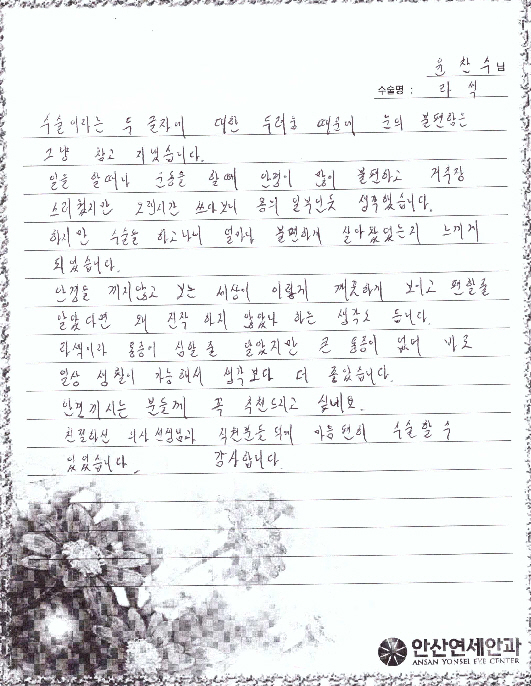 윤찬수님
수술명 : 라섹
수술이라는 두 글자에 대한 두려움 때문에 눈의 불편함은
그냥 참고 지냈습니다.
일을 할때나 운동을 할때 안경이 많이 불편하고 거추장
스러웠지만 오랜시간 쓰다보니 몸의 일부인듯 생활했습니다.
하지만 수술을 하고나니 얼마나 불편하게 살아왔었는지 느끼게
되었습니다.
안경을 끼지않고 보는 세상이 이렇게 깨끗하게 보이고 편할줄
알았다면 왜 진작 하지 않았나 하는 생각도 듭니다.
라섹이라 통증이 심할 줄 알았지만 큰 통증이 없어 바로
일상 생활이 가능해서 생각보다 더 좋았습니다.
안경끼시는 분들께 꼭 추천드리고 싶네요.
친절하신 의사 선생님과 직원분들 덕에 마음 편히 수술할 수
있었습니다. 감사합니다.
안산연세안과
ANSAN YONSEI EYE CENTER